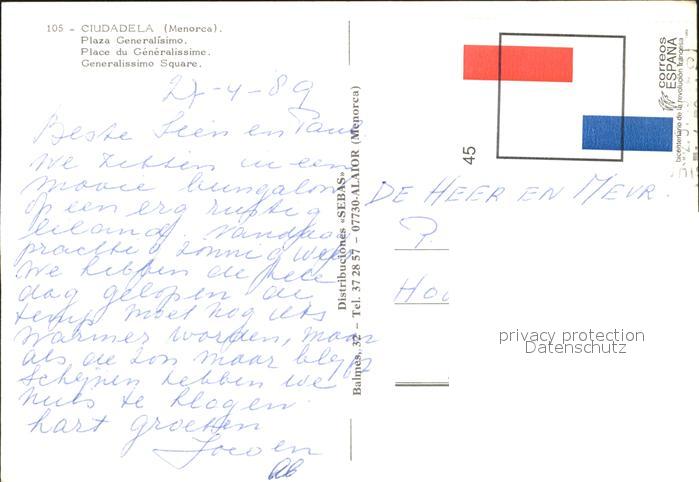 105 - CIUDADELA (Menorca).
Plaza Generalísimo.
Place du Généralissime.
Generalissimo Square.
-4-89
Beste Sien en
We zitten in een
mooie bungalow
op een erg rustig
eiland. Vandaag
prachtig zonnig weer
We hebben de hele
dag gelopen de
temp moet nog iets
warmer worden, maar
als de zon maar blijft
schijnen hebben we
niets te klagen.
hart groeten
Distribuciones «SEBAS»
Balmes, 32 - Tel. 37 28 57 - 07730-ALAIOR (Menorca)
45
correos
ESPAÑA
bicentenario de la revolución francesa
DE HEER EN MEVR.
P.
privacy protection
Datenschutz